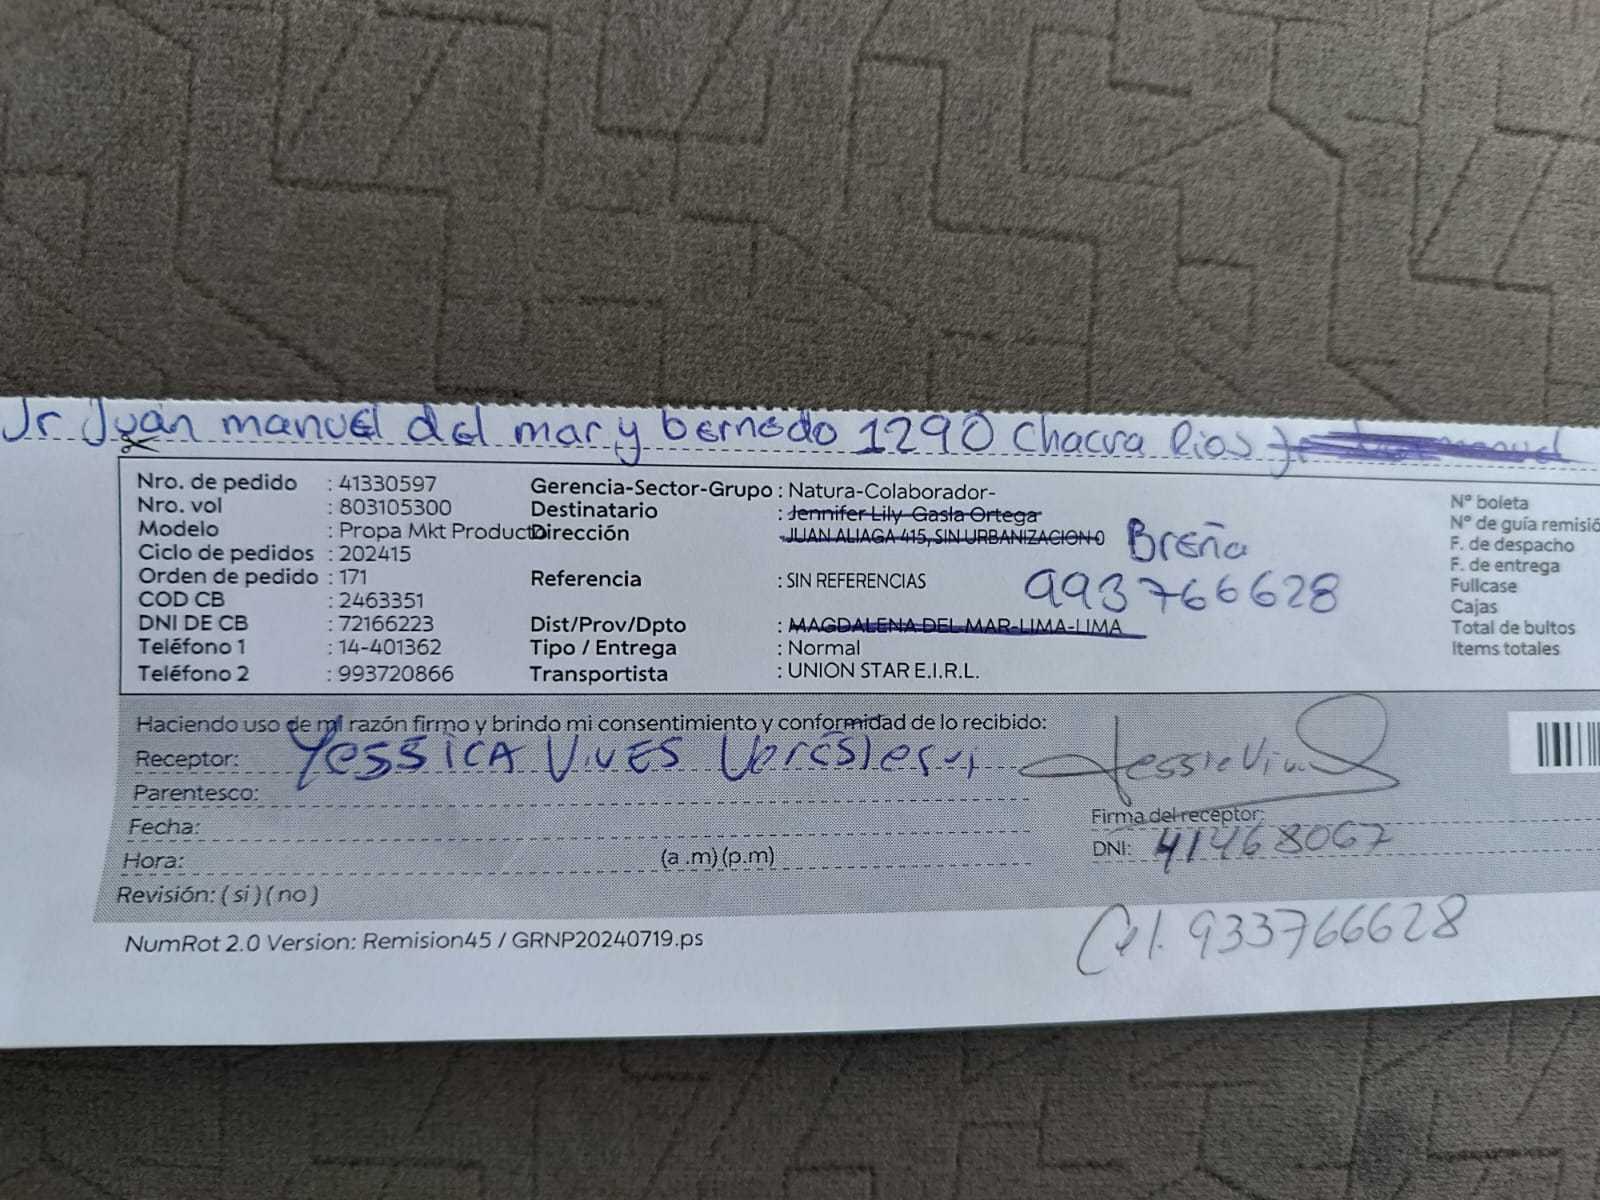 Jr Juan manuel del mar y bernedo 1290 Chacra Rios
Nro. de pedido : 41330597
Nro. vol : 803105300
Modelo : Propa Mkt Producto
Ciclo de pedidos : 202415
Orden de pedido : 171
COD CB : 2463351
DNI DE CB : 72166223
Teléfono 1 : 14-401362
Teléfono 2 : 993720866
Gerencia-Sector-Grupo : Natura-Colaborador-
Destinatario : Jennifer Lily Gasla Ortega
Dirección : JUAN ALIAGA 415, SIN URBANIZACION 0
Breña
Referencia : SIN REFERENCIAS
993766628
Dist/Prov/Dpto : MAGDALENA DEL MAR-LIMA-LIMA
Tipo / Entrega : Normal
Transportista : UNION STAR E.I.R.L.
N° boleta
N° de guía remisió
F. de despacho
F. de entrega
Fullcase
Cajas
Total de bultos
Items totales
Haciendo uso de mi razón firmo y brindo mi consentimiento y conformidad de lo recibido:
Receptor: Yessica Vives
Parentesco:
Fecha:
Hora: (a .m) (p.m)
Revisión: ( si ) ( no )
Firma del receptor:
DNI: 41468067
Cel. 933766628
NumRot 2.0 Version: Remision45 / GRNP20240719.ps